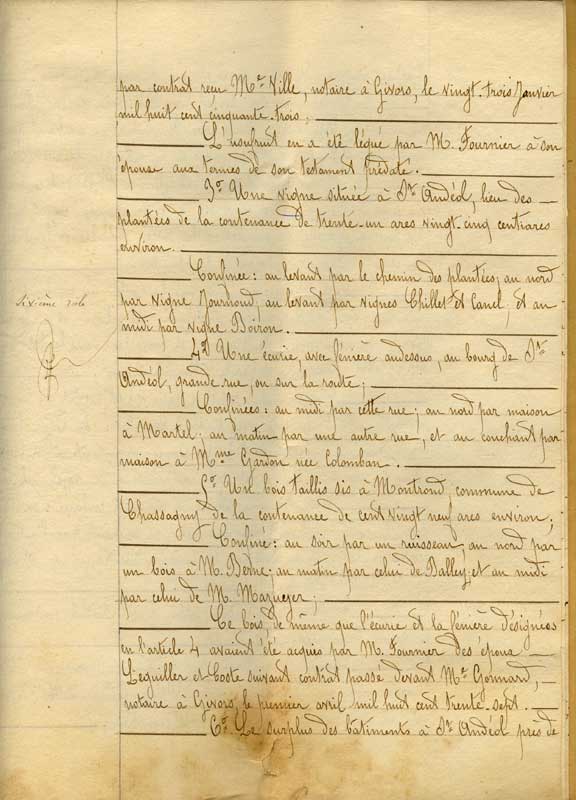 par contrat reçu Me Ville, notaire à Givors, le vingt-trois Janvier
mil huit cent cinquante-trois.
L'usufruit en a été légué par M. Fournier à son
épouse aux termes de son testament prédaté.
3o Une vigne située à St Andéol, lieu des
plantées de la contenance de trente-un ares vingt-cinq centiares
environ.
Confinée : au levant par le chemin des plantées, au nord
par vigne Journoud, au levant par vignes Chillet et Canel, et au
midi par vigne Boiron.
Sixième rôle
4o Une écurie, avec fénière audessus, au bourg de St
Andéol, grande rue, ou sur la route ;
Confinées : au midi par cette rue ; au nord par maison
à Martel ; au matin par une autre rue, et au couchant par
maison à Mme Gardon née Colomban.
5o Un bois taillis sis à Montrond, commune de
Chassagny de la contenance de cent vingt neuf ares environ ;
Confiné : au soir par un ruisseau, au nord par
un bois à M. Berne ; au matin par celui de Balley et au midi
par celui de M. Mazuyer ;
Ce bois de même que l'écurie et la fénière désignées
en l'article 4 avaient été acquis par M. Fournier des époux
Leguiller et Coste suivant contrat passé devant Me Gonnard,
notaire à Givors, le premier avril mil huit cent trente-sept.
6o Le surplus des bâtiments à St Andéol près de